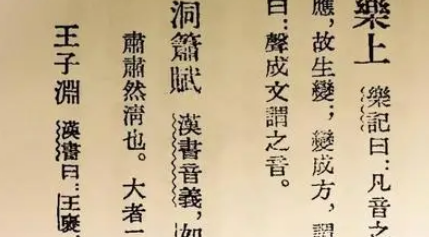 樂上 樂記曰:凡音之
應,故生變;變成方,謂
曰:聲成文謂之音。
洞簫賦 漢書音義,如
肅肅然清也。大者二
王子淵 漢書曰:王襃